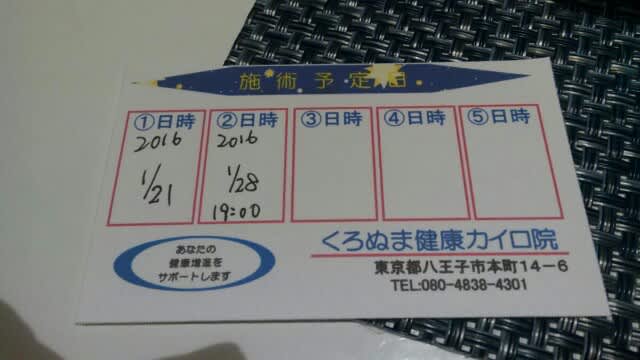 施術予定日
①日時
2016
1/21
②日時
2016
1/28
19:00
③日時
④日時
⑤日時
あなたの
健康増進を
サポートします
くろぬま健康カイロ院
東京都八王子市本町14-6
TEL:080-4838-4301